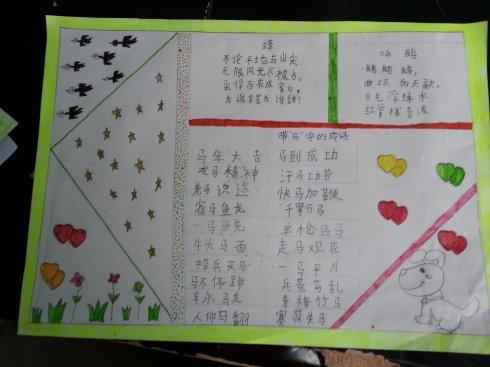 蜂
不论平地与山尖,
无限风光尽被占。
采得百花成蜜后,
为谁辛苦为谁甜?
咏鹅
鹅鹅鹅,
曲项向天歌,
白毛浮绿水
红掌拨清波
带"马"字的成语
马年大吉 马到成功
龙马精神 汗马功劳
老马识途 快马加鞭
千军万马
一马当先 单枪匹马
牛头马面 走马观花
招兵买马 一马平川
马不停蹄 兵荒马乱
车水马龙 青梅竹马
人仰马翻 塞翁失马